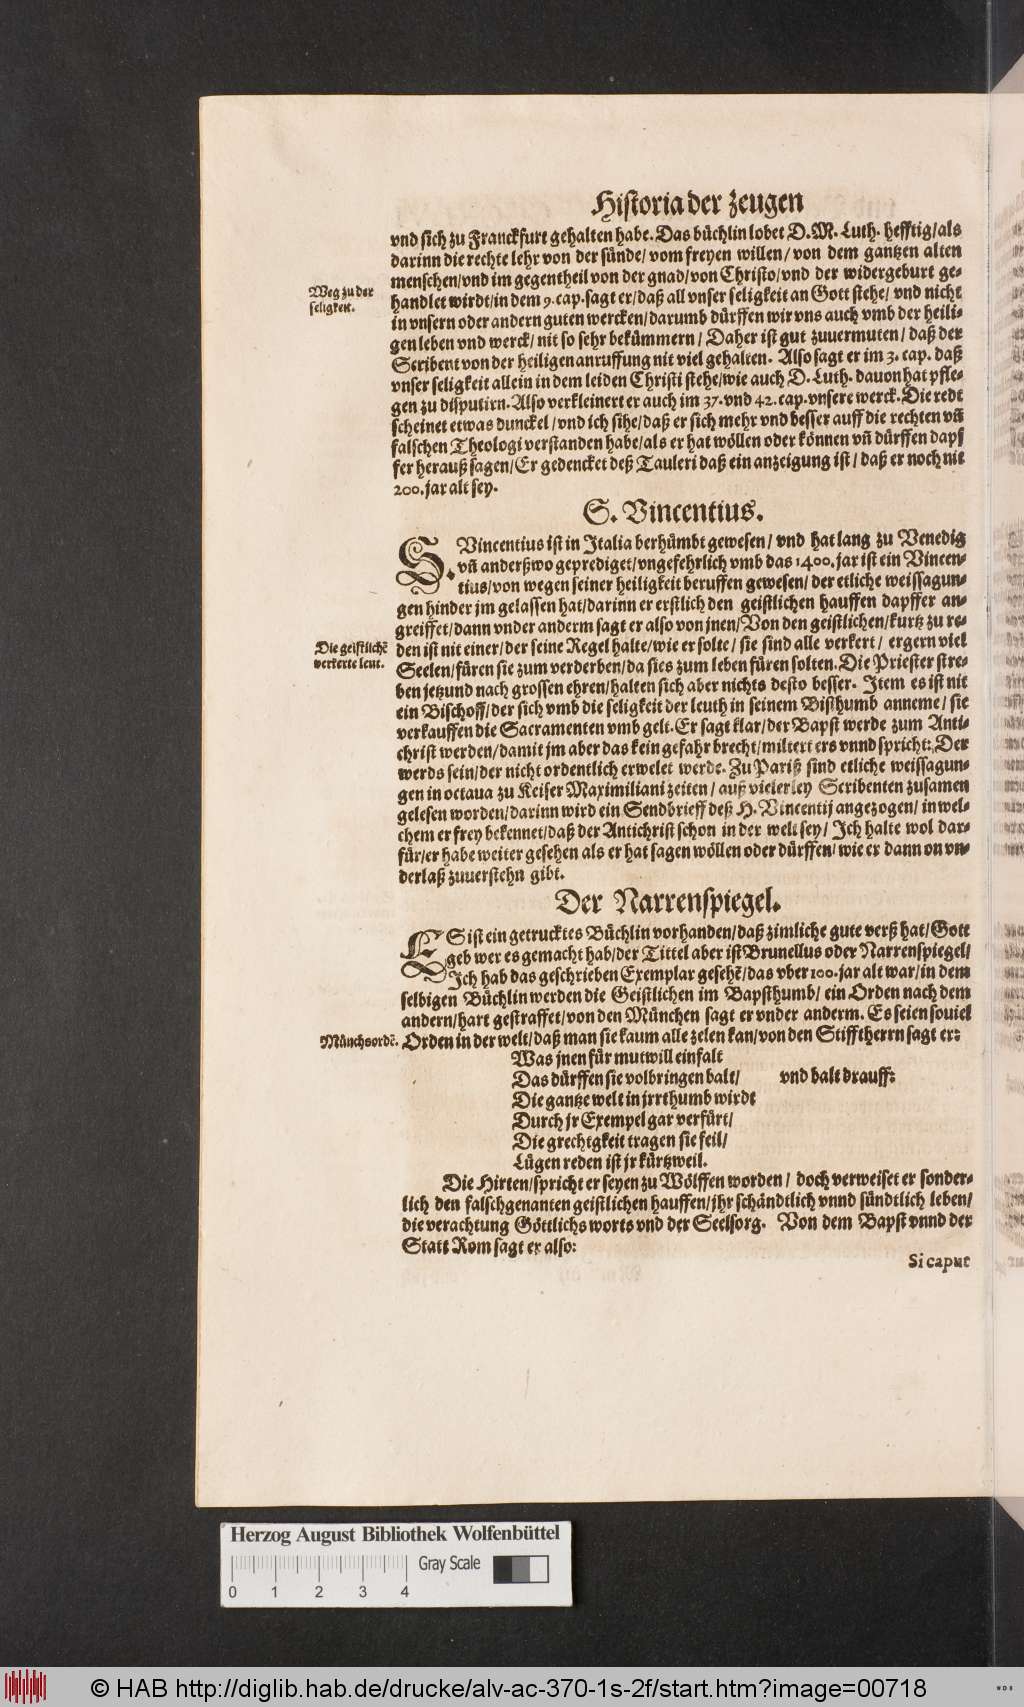 Historia der zeugen
vnd sich zu Franckfurt gehalten habe. Das büchlin lobet D. M. Luth. hefftig/als
darinn die rechte lehr von der sünde/ vom freyen willen/ von dem gantzen alten
menschen/vnd im gegentheil von der gnad/von Christo/vnd der widergeburt ge-
Weg zu der
seligkeit.
handlet wirdt/in dem 9. cap. sagt er/daß all vnser seligkeit an Gott stehe/ vnd nicht
in vnsern oder andern guten wercken/darumb dürffen wir vns auch vmb der heili-
gen leben vnd werck/ nit so sehr bekümmern/ Daher ist gut zuuermuten/ daß der
Scribent von der heiligen anruffung nit viel gehalten. Also sagt er im 3. cap. daß
vnser seligkeit allein in dem leiden Christi stehe/wie auch D. Luth. dauon hat pfle-
gen zu disputirn. Also verkleinert er auch im 37. vnd 42. cap. vnsere werck. Die redt
scheinet etwas dunckel/ vnd ich sihe/daß er sich mehr vnd besser auff die rechten vñ
falschen Theologi verstanden habe/als er hat wöllen oder können vñ dürffen dapf
fer herauß sagen/Er gedencket deß Tauleri daß ein anzeigung ist/ daß er noch nit
200. jar alt sey.
S. Vincentius.
S. Vincentius ist in Italia berhümbt gewesen/ vnd hat lang zu Venedig
vñ anderßwo geprediget/vngefehrlich vmb das 1400. jar ist ein Vincen-
tius/von wegen seiner heiligkeit beruffen gewesen/ der etliche weissagun-
gen hinder jm gelassen hat/darinn er erstlich den geistlichen hauffen dapffer an-
greiffet/dann vnder anderm sagt er also von jnen/Von den geistlichen/kurtz zu re-
Die geistlichē
verkerte leut.
den ist nit einer/der seine Regel halte/wie er solte/ sie sind alle verkert/ ergern viel
Seelen/füren sie zum verderben/da sies zum leben füren solten. Die Priester stre-
ben jetzund nach grossen ehren/halten sich aber nichts desto besser. Item es ist nit
ein Bischoff/der sich vmb die seligkeit der leuth in seinem Bisthumb anneme/ sie
verkauffen die Sacramenten vmb gelt. Er sagt klar/der Bapst werde zum Anti-
christ werden/damit jm aber das kein gefahr brecht/miltert ers vnnd spricht: Der
werds sein/der nicht ordentlich erwelet werde. Zu Pariß sind etliche weissagun-
gen in octaua zu Keiser Maximiliani zeiten/ auß vielerley Scribenten zusamen
gelesen worden/darinn wird ein Sendbrieff deß H. Vincentij angezogen/ in wel-
chem er frey bekennet/daß der Antichrist schon in der welt sey/ Ich halte wol dar-
für/er habe weiter gesehen als er hat sagen wöllen oder dürffen/ wie er dann on vn-
derlaß zuuerstehn gibt.
Der Narrenspiegel.
ES ist ein getrucktes Büchlin vorhanden/daß zimliche gute verß hat/Gott
geb wer es gemacht hab/der Tittel aber ist Brunellus oder Narrenspiegel/
Ich hab das geschrieben Exemplar gesehē/das vber 100. jar alt war/in dem
selbigen Büchlin werden die Geistlichen im Bapsthumb/ ein Orden nach dem
andern/hart gestraffet/von den München sagt er vnder anderm. Es seien souiel
Münchsordē.
Orden in der welt/daß man sie kaum alle zelen kan/von den Stifftherrn sagt er:
Was jnen für mutwill einfalt
Das dürffen sie volbringen balt/ vnd balt drauff:
Die gantze welt in jrrthumb wirdt
Durch jr Exempel gar verfürt/
Die grechtgkeit tragen sie feil/
Lügen reden ist jr kürtzweil.
Die Hirten/spricht er seyen zu Wölffen worden/ doch verweiset er sonder-
lich den falschgenanten geistlichen hauffen/jhr schändtlich vnnd sündtlich leben/
die verachtung Göttlichs worts vnd der Seelsorg. Von dem Bapst vnnd der
Statt Rom sagt er also:
Si caput
Herzog August Bibliothek Wolfenbüttel
Gray Scale
0 1 2 3 4
© HAB http://diglib.hab.de/drucke/alv-ac-370-1s-2f/start.htm?image=00718